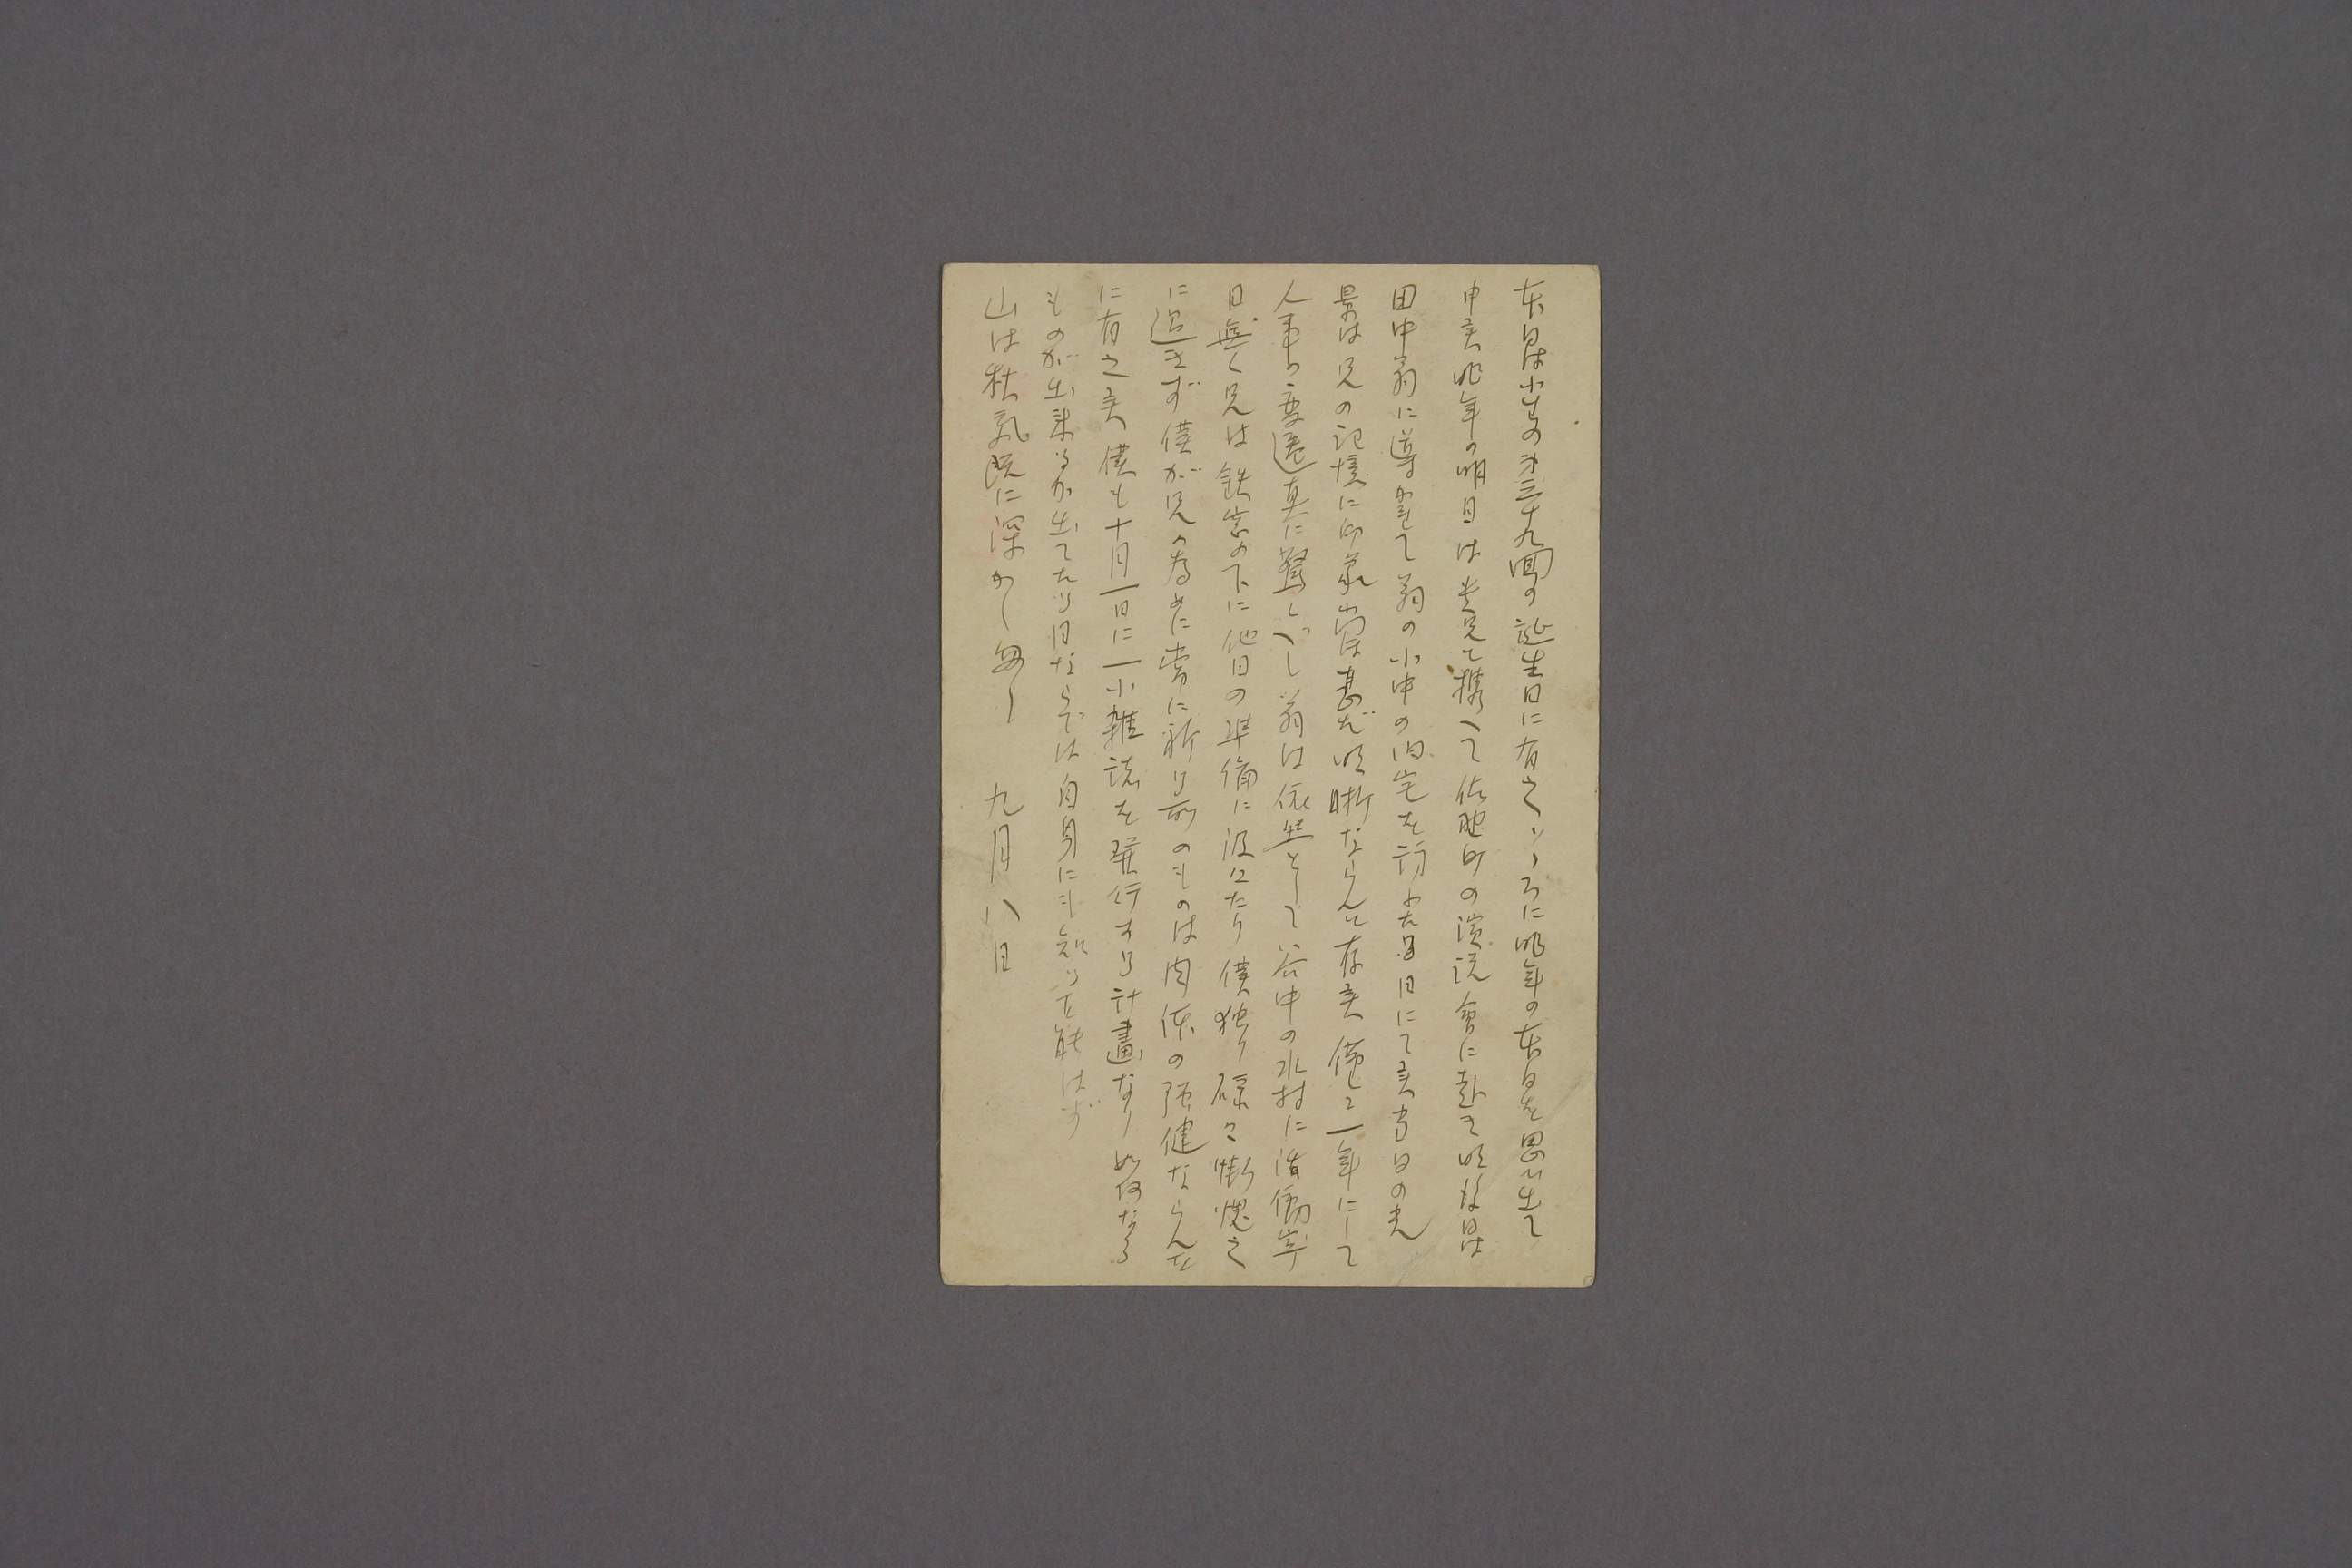 本日は小生の第三十九囘の誕生日に有之そゞろに昨年の本日を思ひ出で
申候昨年の明日は貴兄と携へて佐野町の演説會に赴き明後日は
田中翁に導かれて翁の小中の旧宅を訪ねたる日にて候當日の光
景は兄の記憶に印象尚ほ甚だ明晰ならんと存候 僅々一年にして
人事の変遷真に驚くべし翁は依然として谷中の水村に活働寧
日無く兄は鉄窓の下に他日の準備に汲々たり 僕独り碌々慚愧之
に過ぎず僕が兄の為めに常に祈る所のものは肉体の强健ならんを
に有之候 僕も十月一日に一小雑誌を発行する計畫なり如何なる
ものが出来るか出てたる日ならでは自身にも知る能はず
山は秋氣既に深かし匆々 九月八日